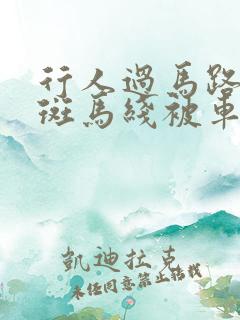 行人過馬路
斑馬綫被車
凱迪拉克
未经同意禁止转载